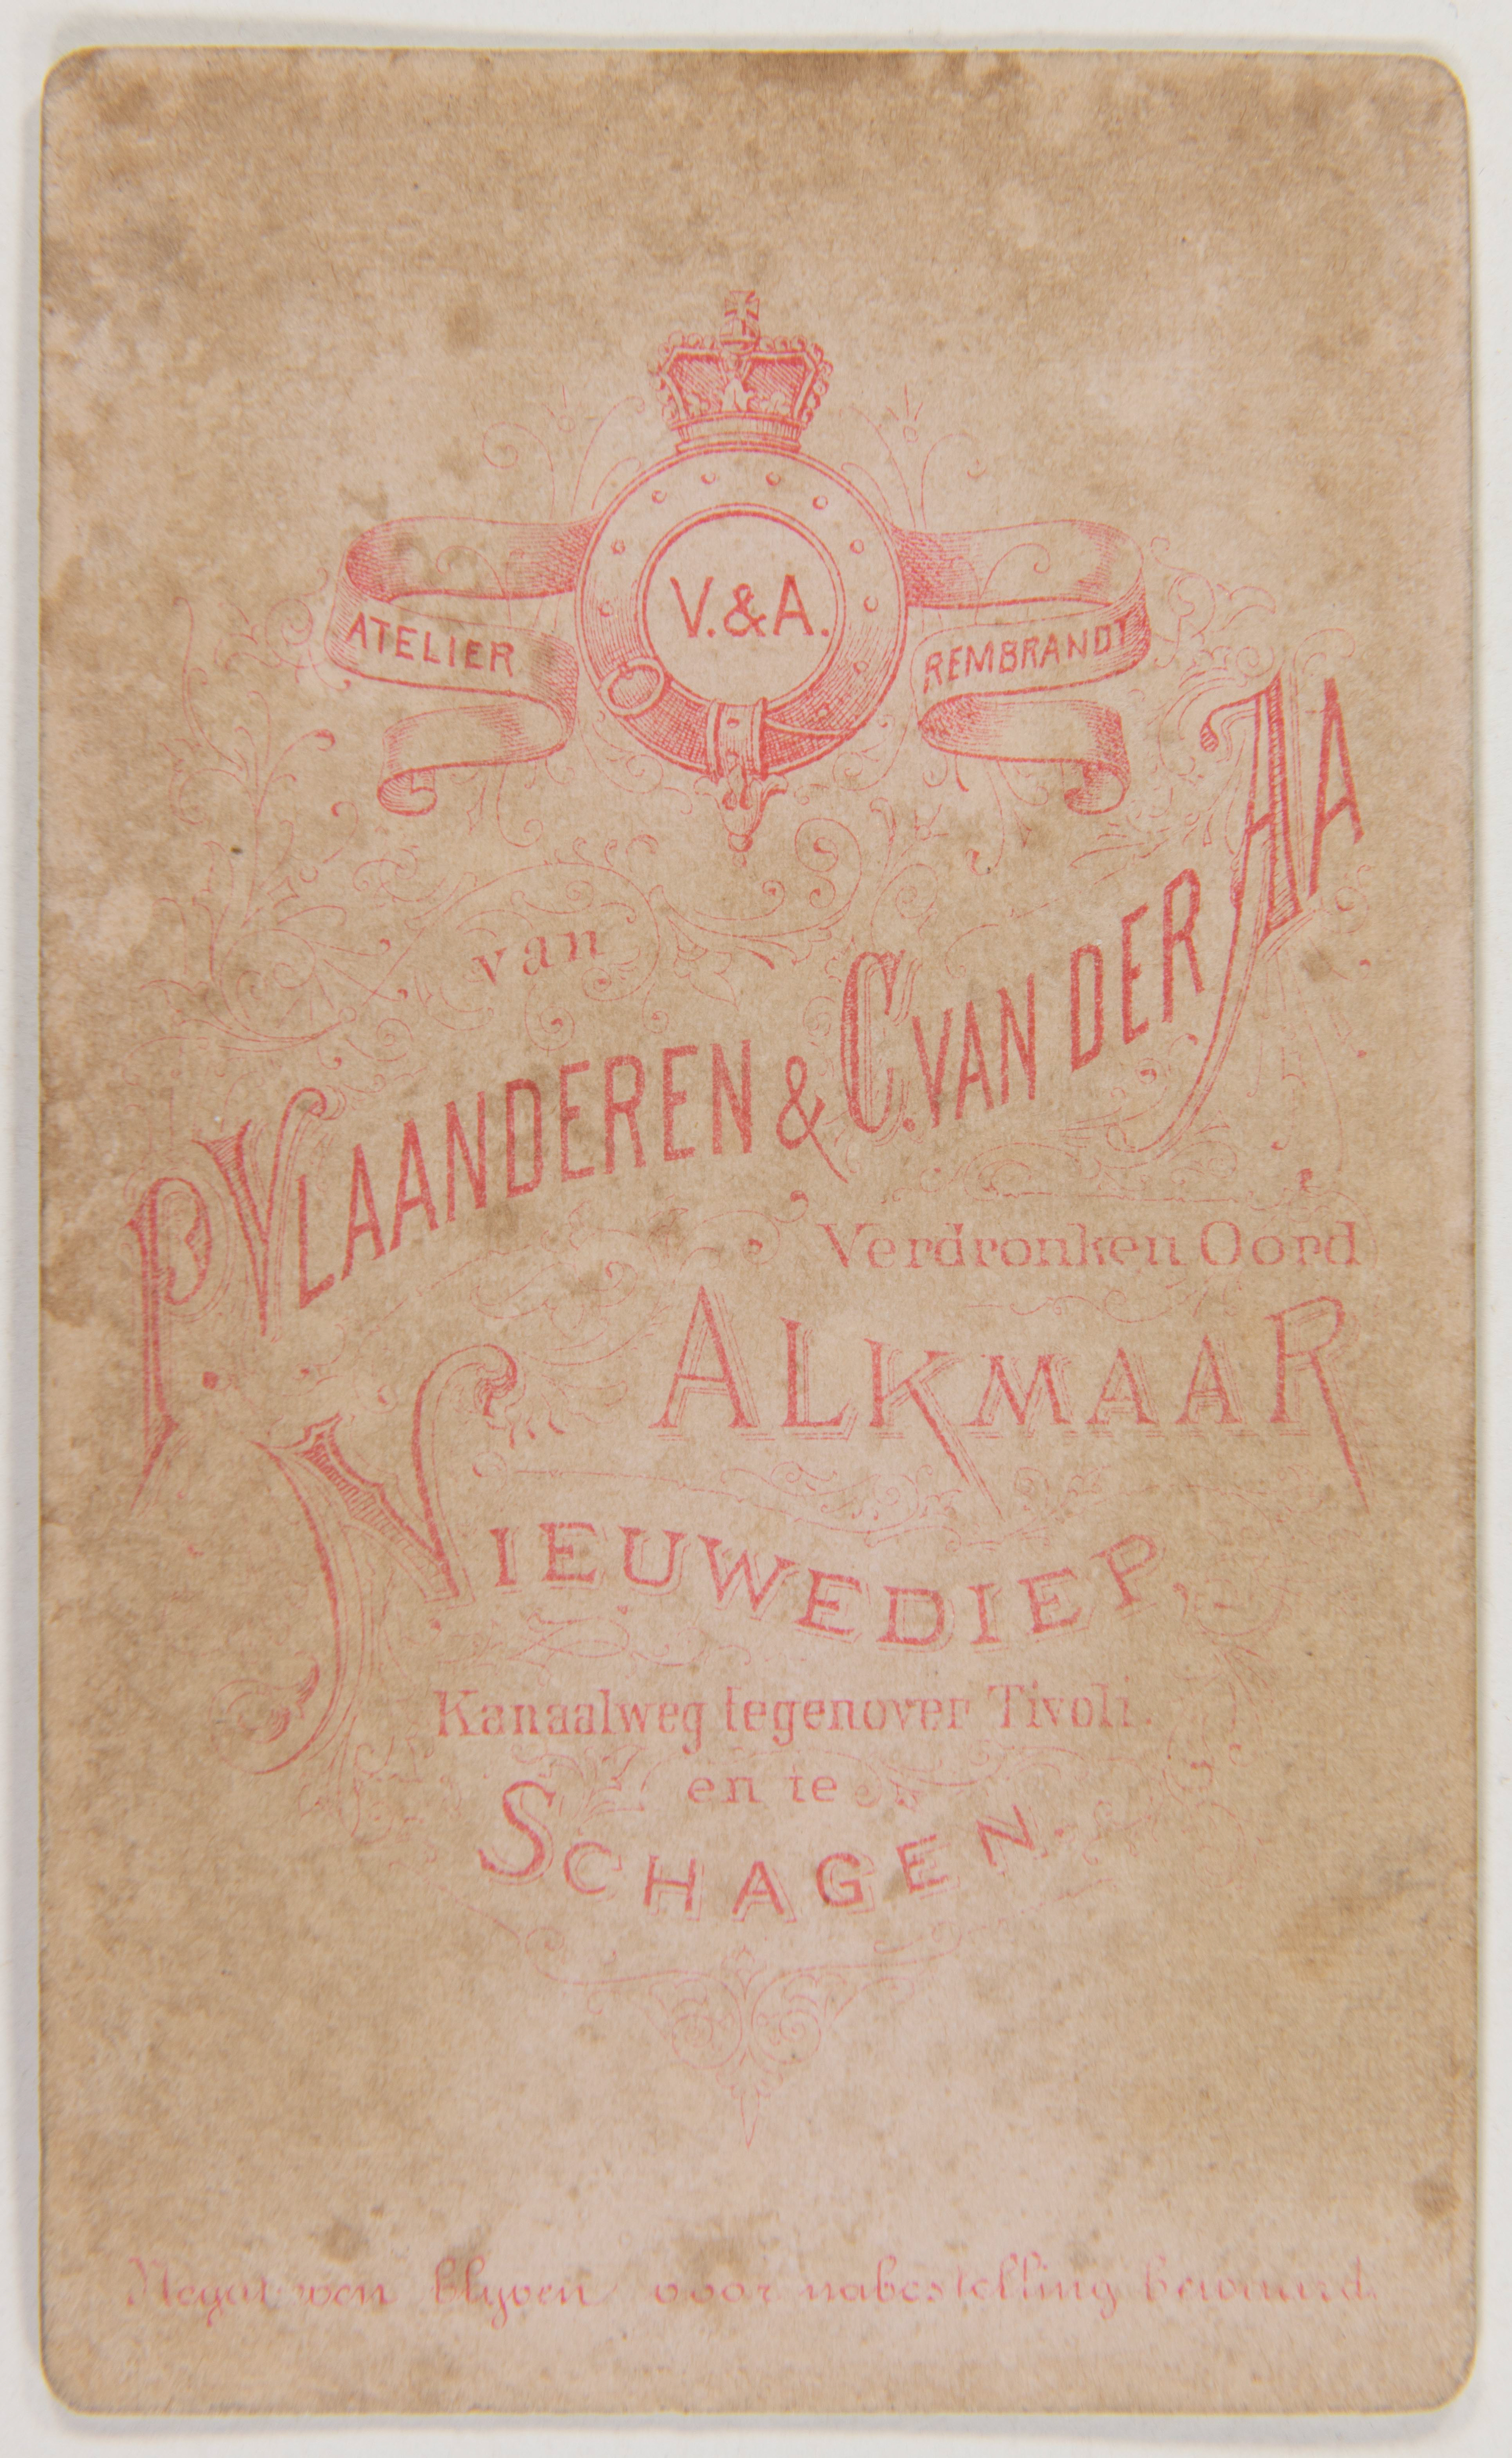 V.&A.
ATELIER REMBRANDT
van
P. VLAANDEREN & C. VAN DER AA
Verdronken Oord
ALKMAAR
NIEUWEDIEP,
Kanaalweg tegenover Tivoli.
en te
SCHAGEN.
Negativen blyven voor nabestelling bewaard.